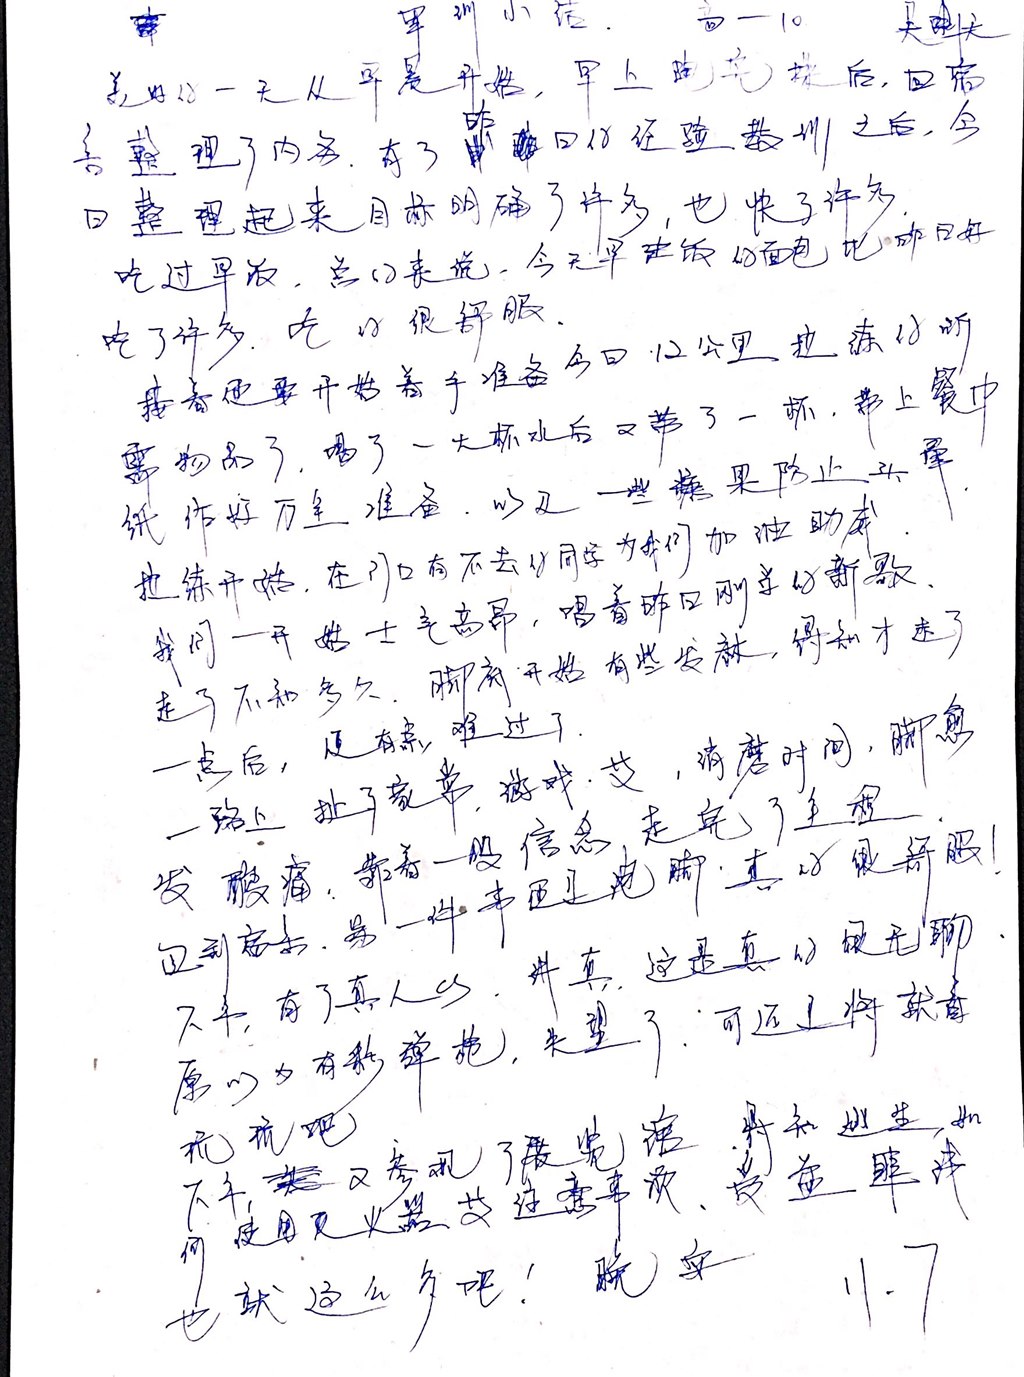 军训小结. 高一10 吴
美好的一天从早晨开始, 早上跑完操后, 回宿
舍整理了内务. 有了昨日的经验教训之后, 今
日整理起来目标明确了许多, 也快了许多.
吃过早饭, 总的来说, 今天早饭的面包比昨日好
吃了许多. 吃的很舒服.
接着便要开始着手准备今日12公里拉练的所
需物品了, 喝了一大杯水后又带了一杯. 带上餐巾
纸作好万全准备. 以及一些糖果防止头晕.
拉练开始. 在门口有不去的同学为我们加油助威.
我们一开始士气高昂, 唱着昨日刚学的新歌.
走了不知多久. 脚底开始有些发麻, 得知才走了
一点后, 便有点难过了.
一路上扯了家常, 游戏.艾, 消磨时间, 脚愈
发酸痛. 靠着一股信念走完了全程.
回到宿舍. 第一件事便是泡脚. 真的很舒服!
下午, 有了真人CS. 讲真, 这是真的很无聊.
原以为有彩弹枪, 失望了. 可还是将就着
玩玩吧
下午, 又参观了展览馆. 得知逃生, 如
何使用灭火器, 艾注意事项. 受益匪浅
也就这么多吧! 晚安 11.7